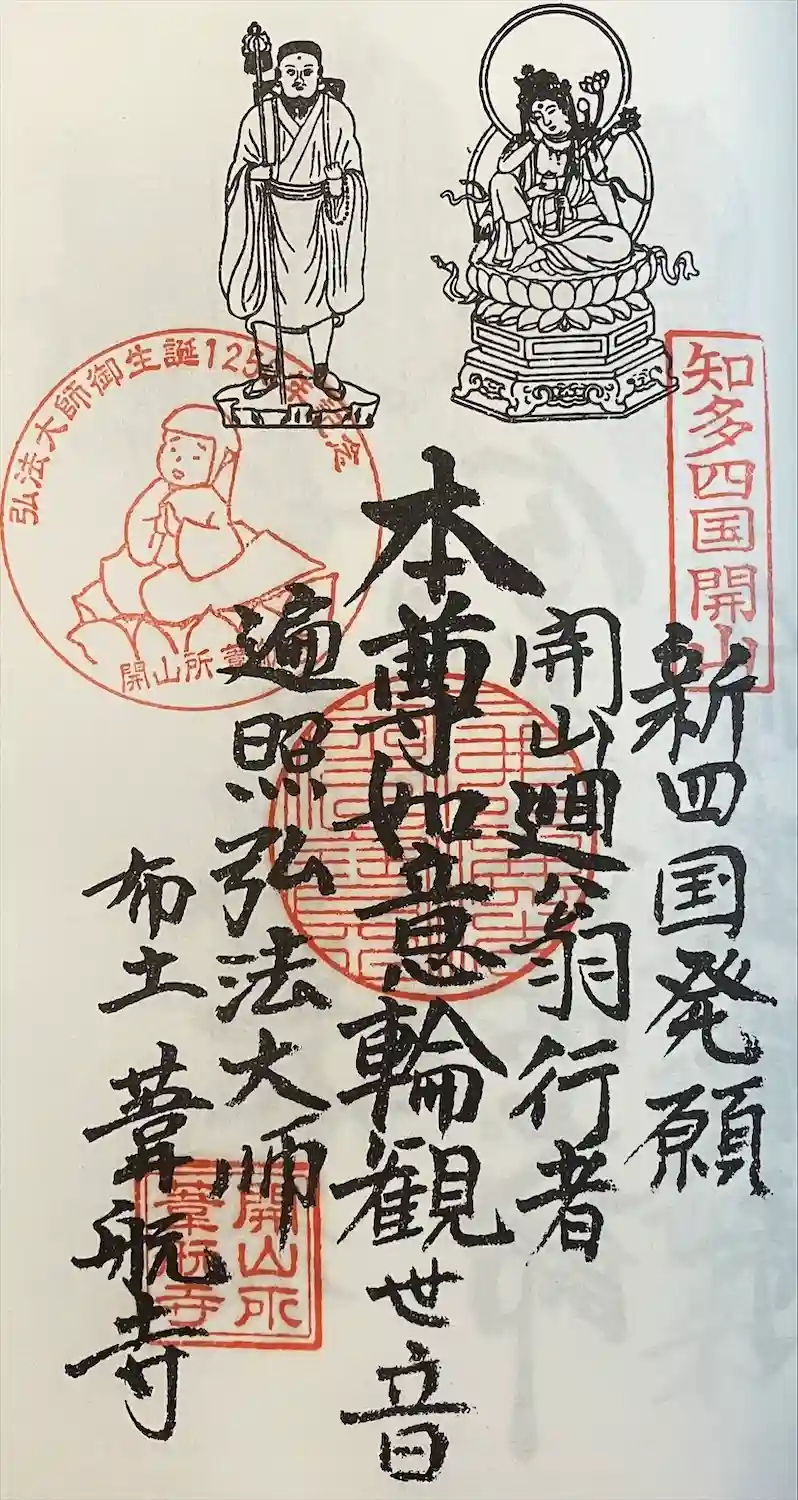 知多四国開山
新四国発願
開山廻翁行者
本尊如意輪観世音
遍照弘法大师
布土 葦航寺
弘法大師御生誕125
念
開山所 葦
開山所
葦航寺